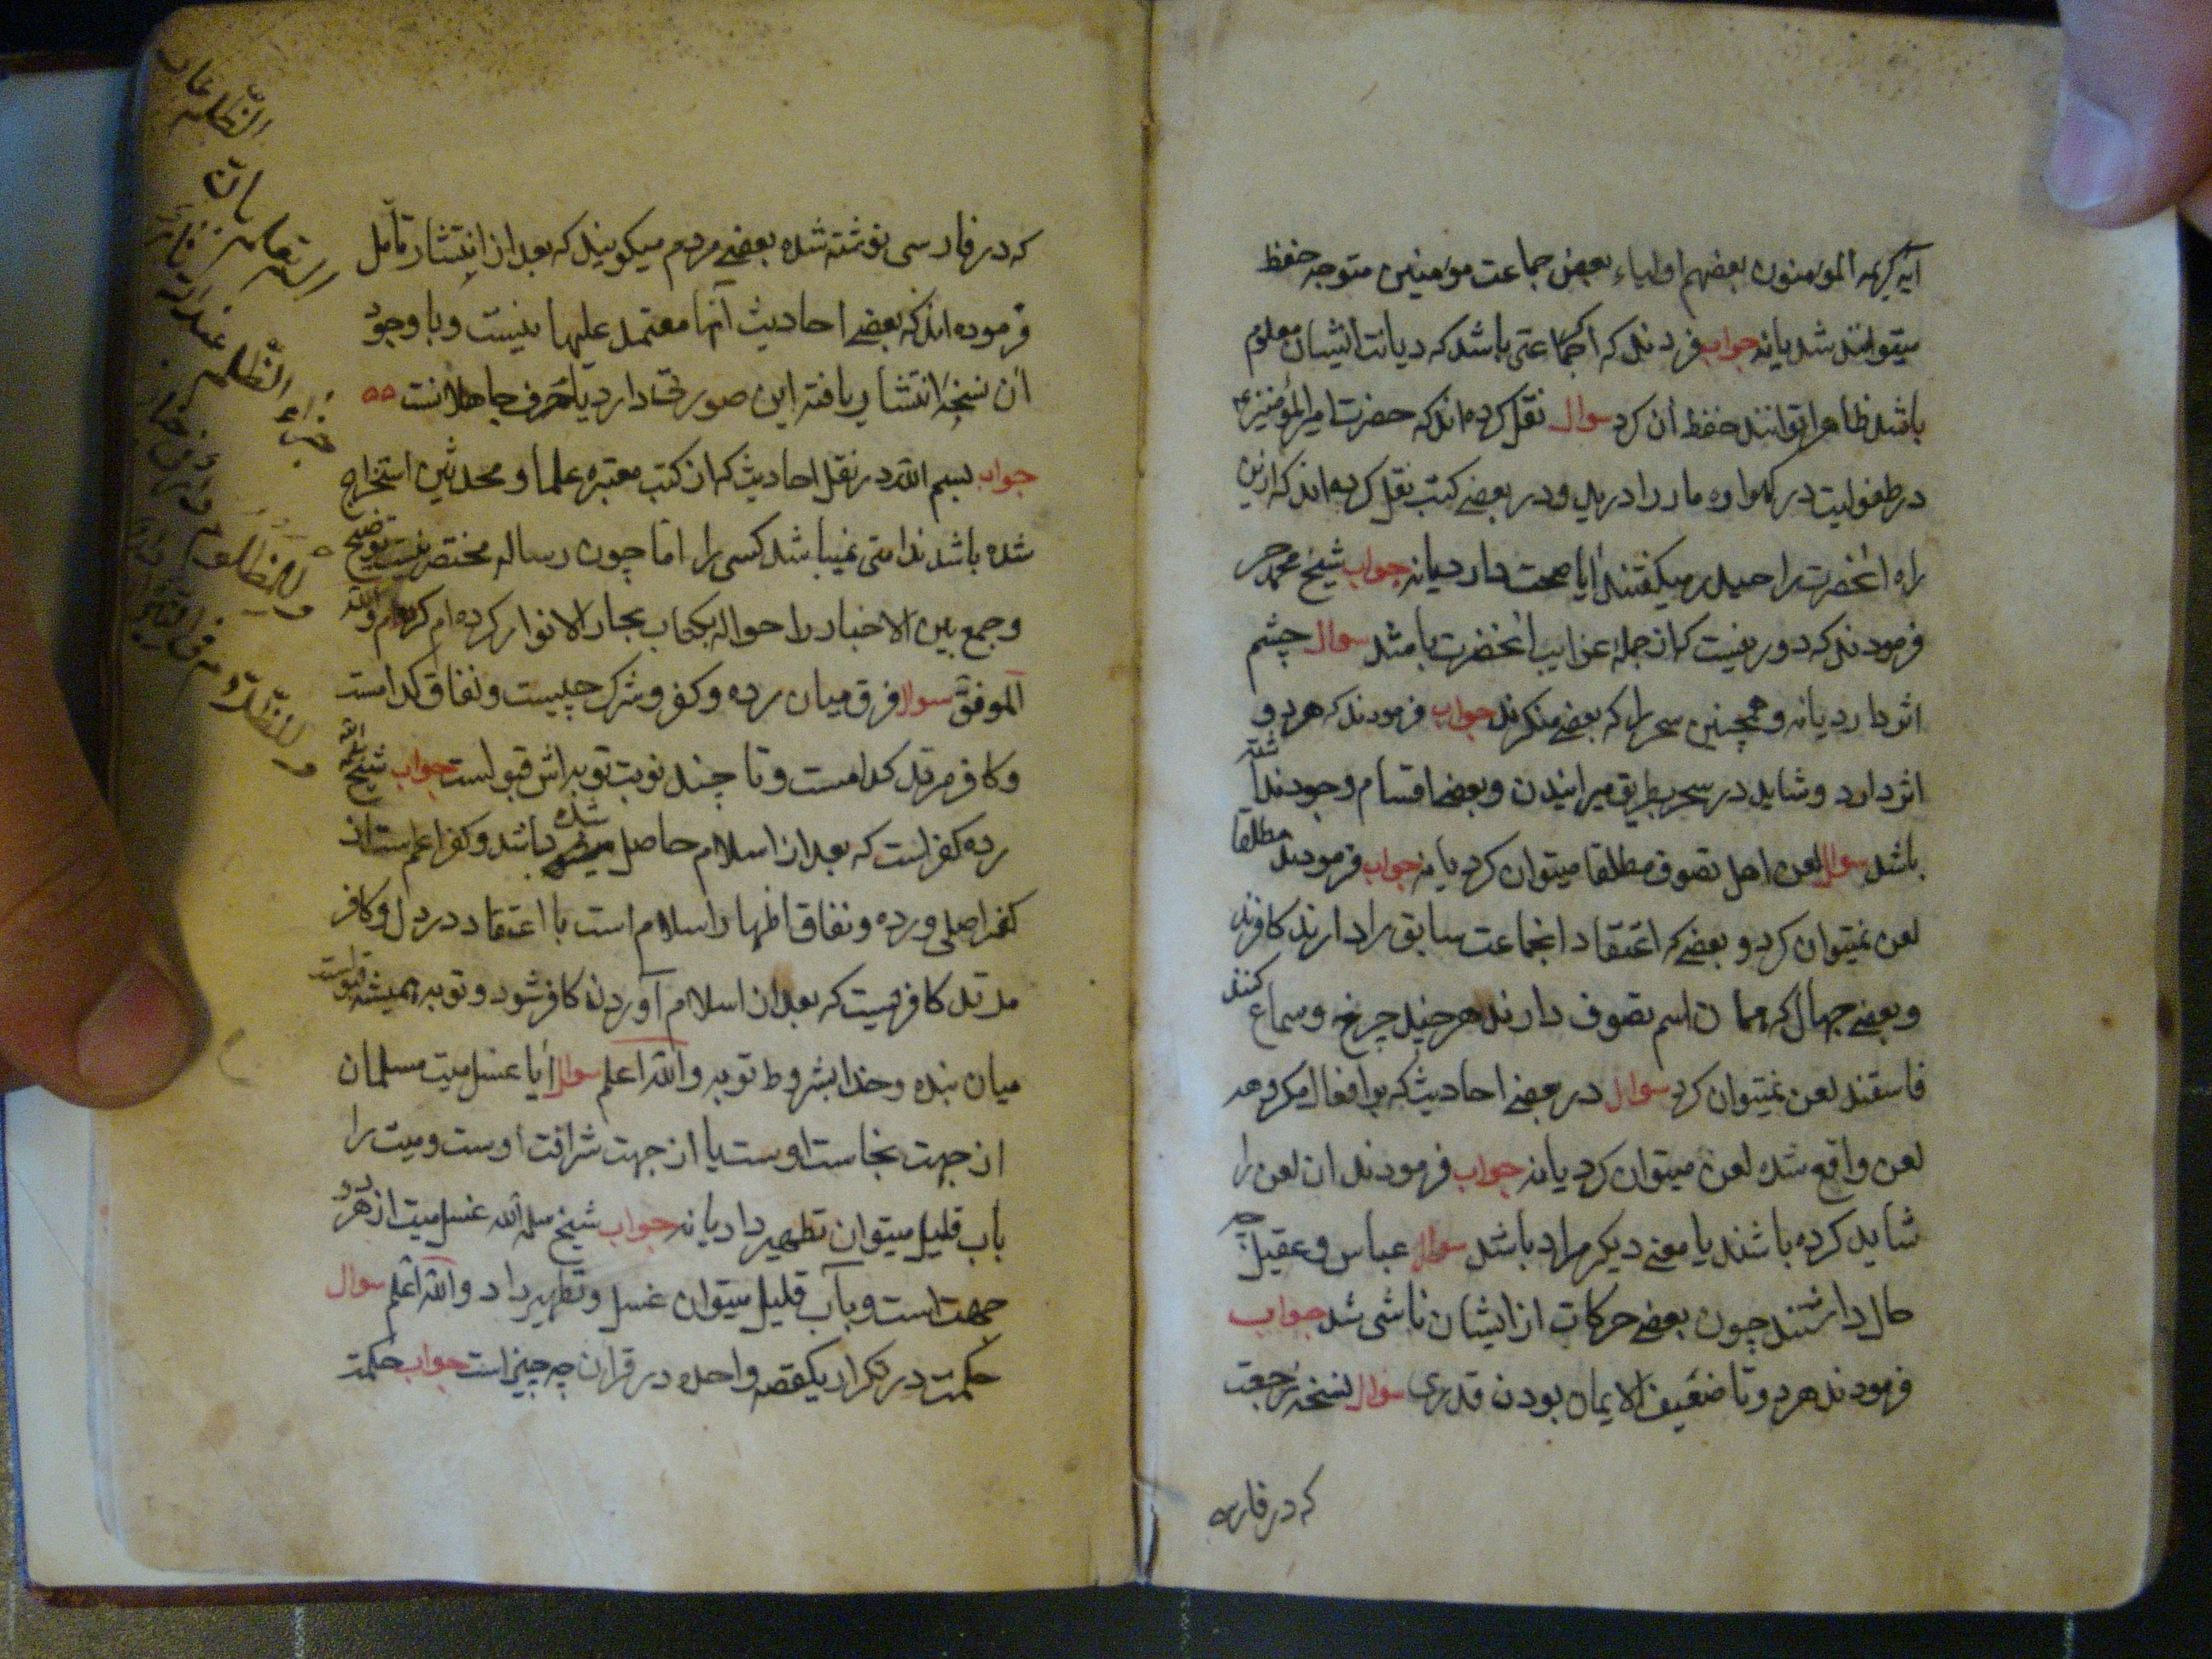 آیه کریمه المومنون بعضهم اولیاء بعض جماعت مومنین متوجه حفظ
میتوانند شد یا نه جواب فرمودند که اگر جماعتی باشد که دیانت ایشان معلوم
باشد ظاهرا توانند حفظ آن کرد سوال نقل کرده‌اند که حضرت امیرالمؤمنین ع
در طفولیت در کهواره مار را درید و در بعضی کتب نقل کرده‌اند که ازین
راه آنحضرت را حیدر میکفتند ایا صحت دارد یا نه جواب شیخ محمد حر
فرمودند که دور نیست که از جمله غرایب آنحضرت باشد سوال چشم
اثر دارد یا نه و همچنین سحر را که بعضی منکرند جواب فرمودند که هر دو
اثر دارد و شاید در سحر بطریق میرانیدن و بعضی اقسام وجود نداشته
باشد سوال لعن اهل تصوف مطلقا میتوان کرد یا نه جواب فرمودند مطلقا
لعن نمیتوان کرد و بعضی که اعتقاد انجماعت سابق را دارند کافرند
و بعضی جهال که همان اسم تصوف دارند هر چند چرخ و سماع کنند
فاسقند لعن نمیتوان کرد سوال در بعضی احادیث که بر افعال مکروهه
لعن واقع شده لعن میتوان کرد یا نه جواب فرمودند ان لعن را
شاید کرده باشند یا معنی دیکر مراد باشد سوال عباس و عقیل چه
حال داشتند چون بعضی حرکات از ایشان ناشی شد جواب
فرمودند هر دو تا ضعیف الایمان بودن قدری سوال نسخه رجعت
که در فارسی
که در فارسی نوشته شده بعضی مردم میکویند که بعد از انتشار تامل
فرموده‌اند که بعضی احادیث آنها معتمد علیها نیست و با وجود
آن نسخه انتشار یافته این صورتی دارد یا حرف جاهلانست
جواب بسم الله در نقل احادیث که از کتب معتبره علما و محدثین استخراج
شده باشد ندامتی نمیباشد کسی را اما چون رساله مختصریست توضیح
و جمع بین الاخبار را حواله بکتاب بحار الانوار کرده‌ام والله
الموفق سوال فرق میان رده و کفر و شرک چیست و نفاق کدامست
و کافر مرتد کدامست و تا چند نوبت توبه‌اش قبولست جواب شیخ سلمه الله
رده کفر است که بعد از اسلام حاصل شده باشد و کفر اعم است از
کفر اصلی و رده و نفاق اظهار اسلام است با اعتقاد در دل و کافر
مرتد کافریست که بعد از اسلام آوردن کافر شود و توبه همیشه قبول است
میان بنده و خدا بشروط توبه والله اعلم سوال ایا غسل میت مسلمان
از جهت نجاست اوست یا از جهت شرافت اوست و میت را
بآب قلیل میتوان تطهیر داد یا نه جواب شیخ سلمه الله غسل میت از هر دو
جهت است و بآب قلیل میتوان غسل و تطهیر داد والله اعلم سوال
حکمت در تکرار یکقصه واحده در قران چه چیز است جواب حکمت